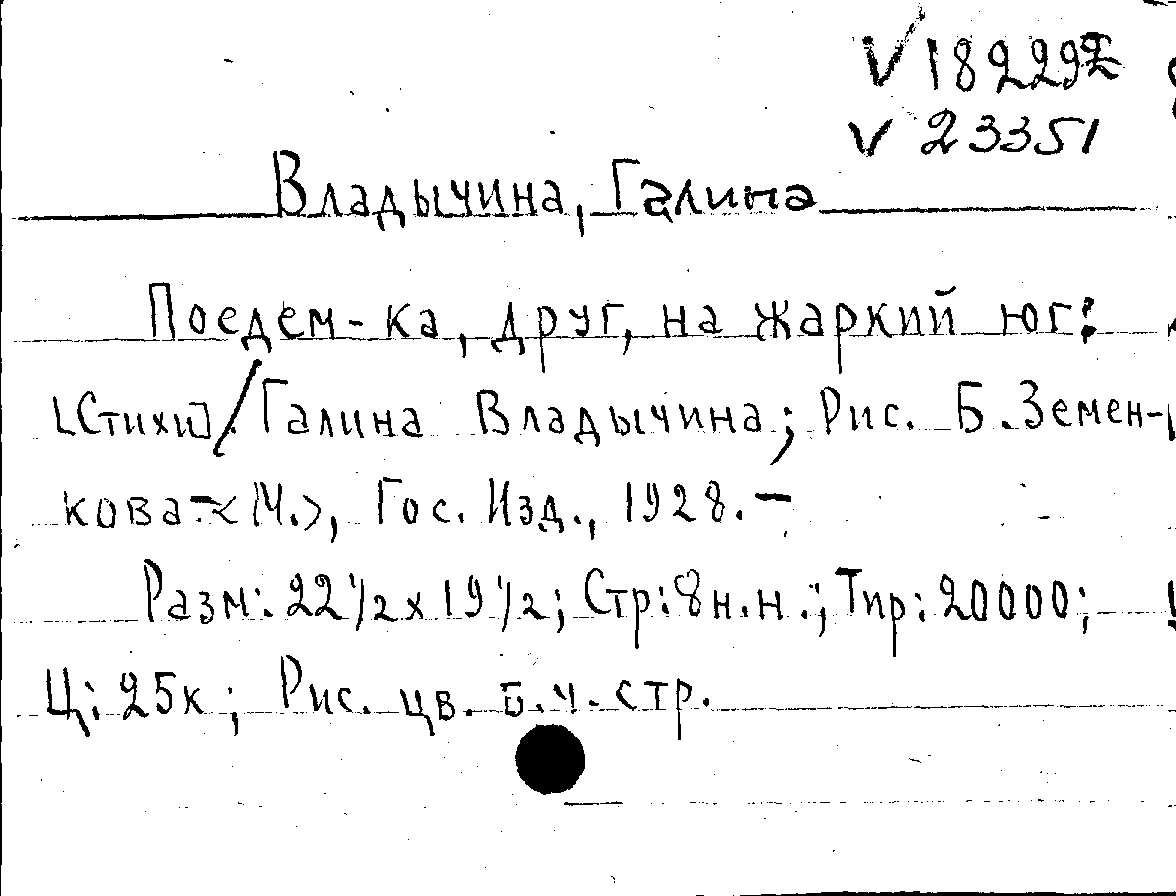 V 182292
V 23351
Владычина, Галина
Поедем-ка, друг, на жаркий юг:
[Стихи] / Галина Владычина; Рис. Б. Земен-
кова.-<М.>, Гос. Изд., 1928. –
Разм: 22 1/2 x 19 1/2; Стр: 8 н.н.; Тир: 20000;
Ц: 25к; Рис. цв. б.ч. стр.